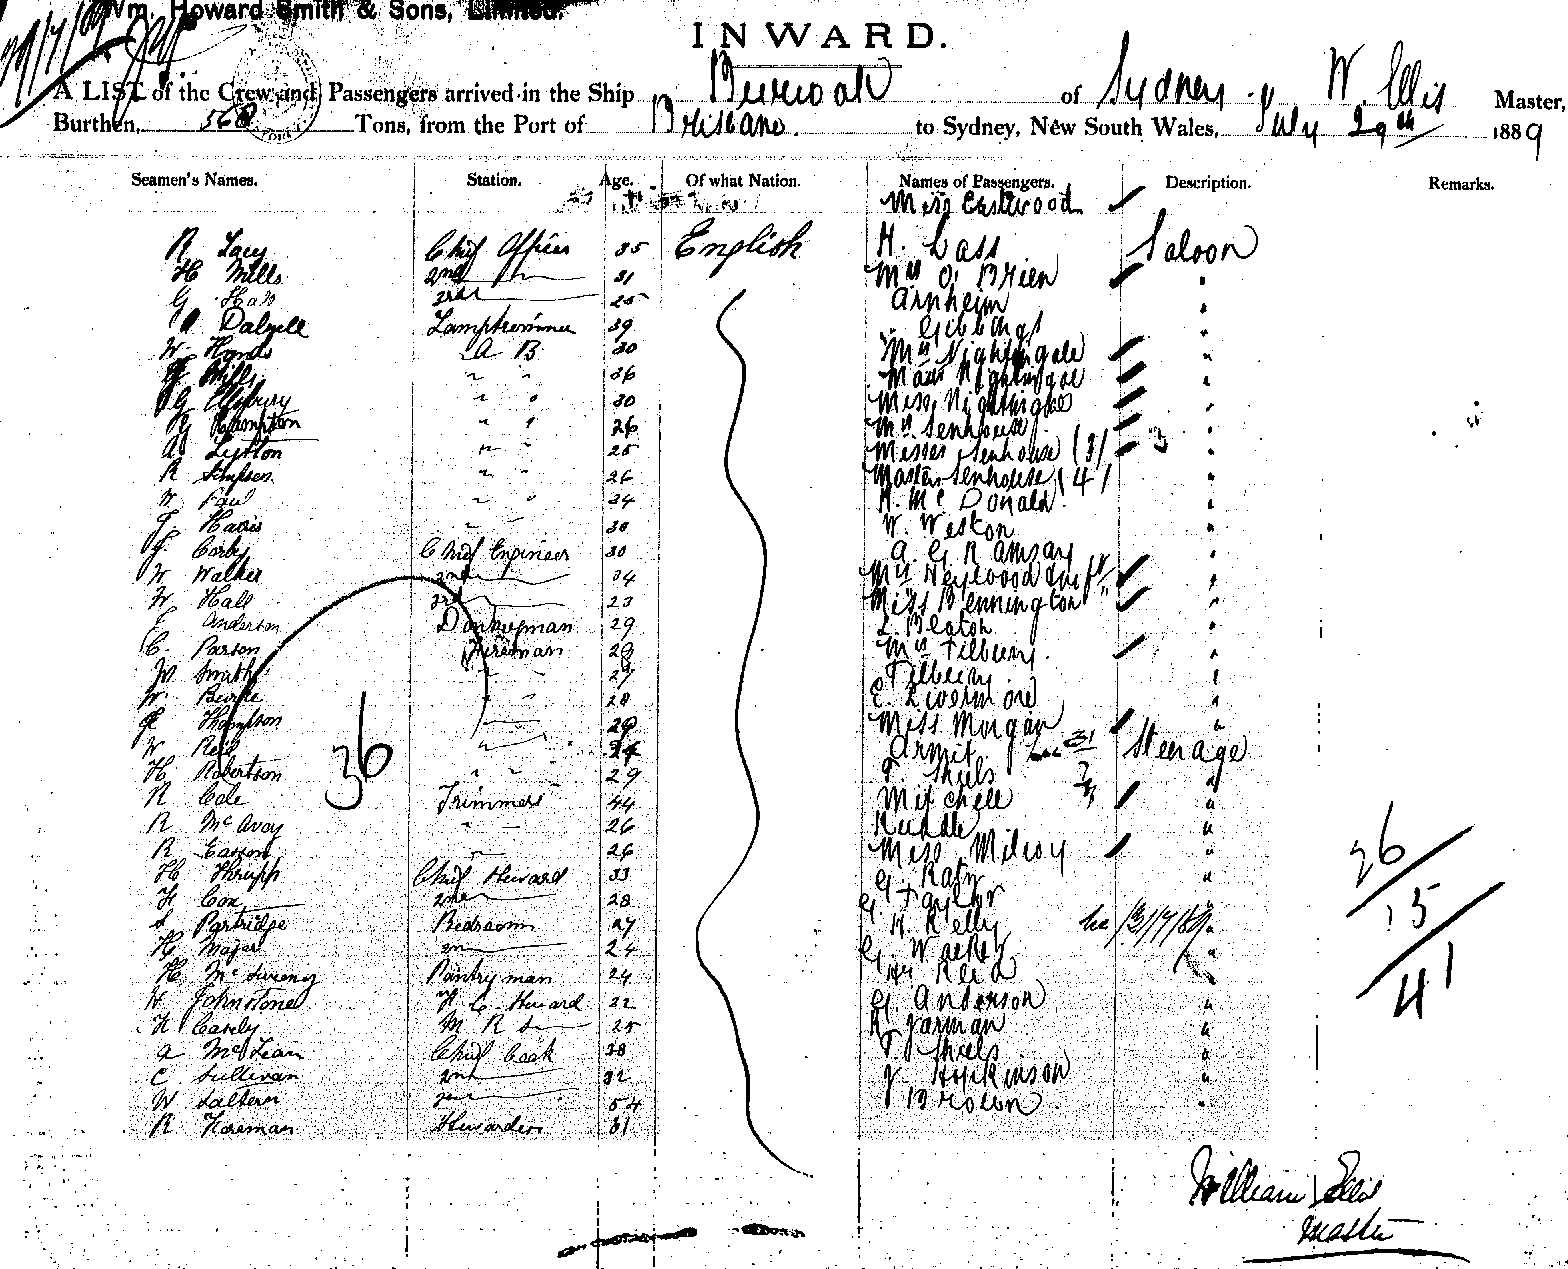 Wm. Howard Smith & Sons, Limited.
29/7/89
INWARD.
A LIST of the Crew and Passengers arrived in the Ship Burwah of Sydney W. Ellis Master,
Burthen, 568 Tons, from the Port of Brisbane. to Sydney, New South Wales, July 29th 1889
Seamen's Names. Station. Age. Of what Nation. Names of Passengers. Description. Remarks.
Miss Eastwood
R Lacy Chief Officer 35 English H. Cass Saloon
H Mills 2nd 31 Mrs O'Brien "
G Hall 25 Arnheim "
Dalzell Lamptrimmer 39 Gibbings "
W. A B 30 Mrs Nightingale "
Mills " " 36 Nightingale "
G " " 30 Miss Nightingale "
Hampton " " 26 Mrs Senhouse "
A Lytton " " 25 Misses Senhouse (3) "
R Simpson " " 26 Masters Senhouse (4) "
W Paul " " 34 Mc Donald "
Harris " " 30 W. Weston "
Corby Chief Engineer 30 A G Ramsay "
W Walker 2nd 34 Mrs Heywood "
W Hall 3rd 23 Miss Bennington "
Anderson Donkeyman 29 Beaton "
C. Parson Fireman 29 Mrs Tilbury "
W Smith " 27 Tilbury "
W. " " 28 E Livermore "
Thompson " 29 Miss Morgan "
W Reid " Armit Steerage
H Robertson " " 29 T Shiels "
R Cole Trimmers 44 Mitchell "
R McAvoy " " 26 Rundle "
R Easson " 26 Miss Milroy "
H Thrupp Chief Steward 33 G. "
H Cox 2nd 28 G Taylor "
S Partridge Bedroom 27 H Kelly 31/7/89 "
H Major 24 G. "
H McSweeny Pantryman 24 Reid "
W Johnstone F C Steward 22 G Anderson "
H M R S 25 R Jarman "
A McLean Chief Cook 38 T Shiels "
C Sullivan 2nd 32 J Hopkinson "
W 54 J Brown "
R Foreman Stewardess 31
36
26
15
41
William Ellis
Master